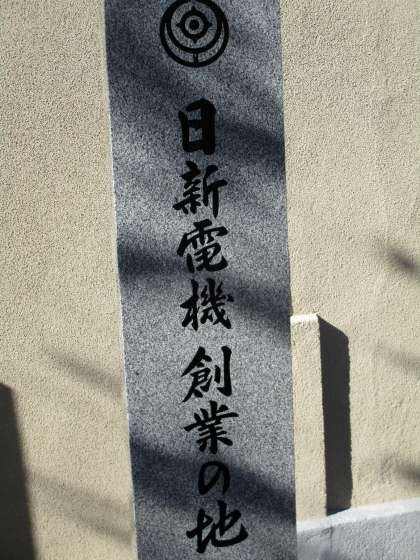 日新電機 創業の地